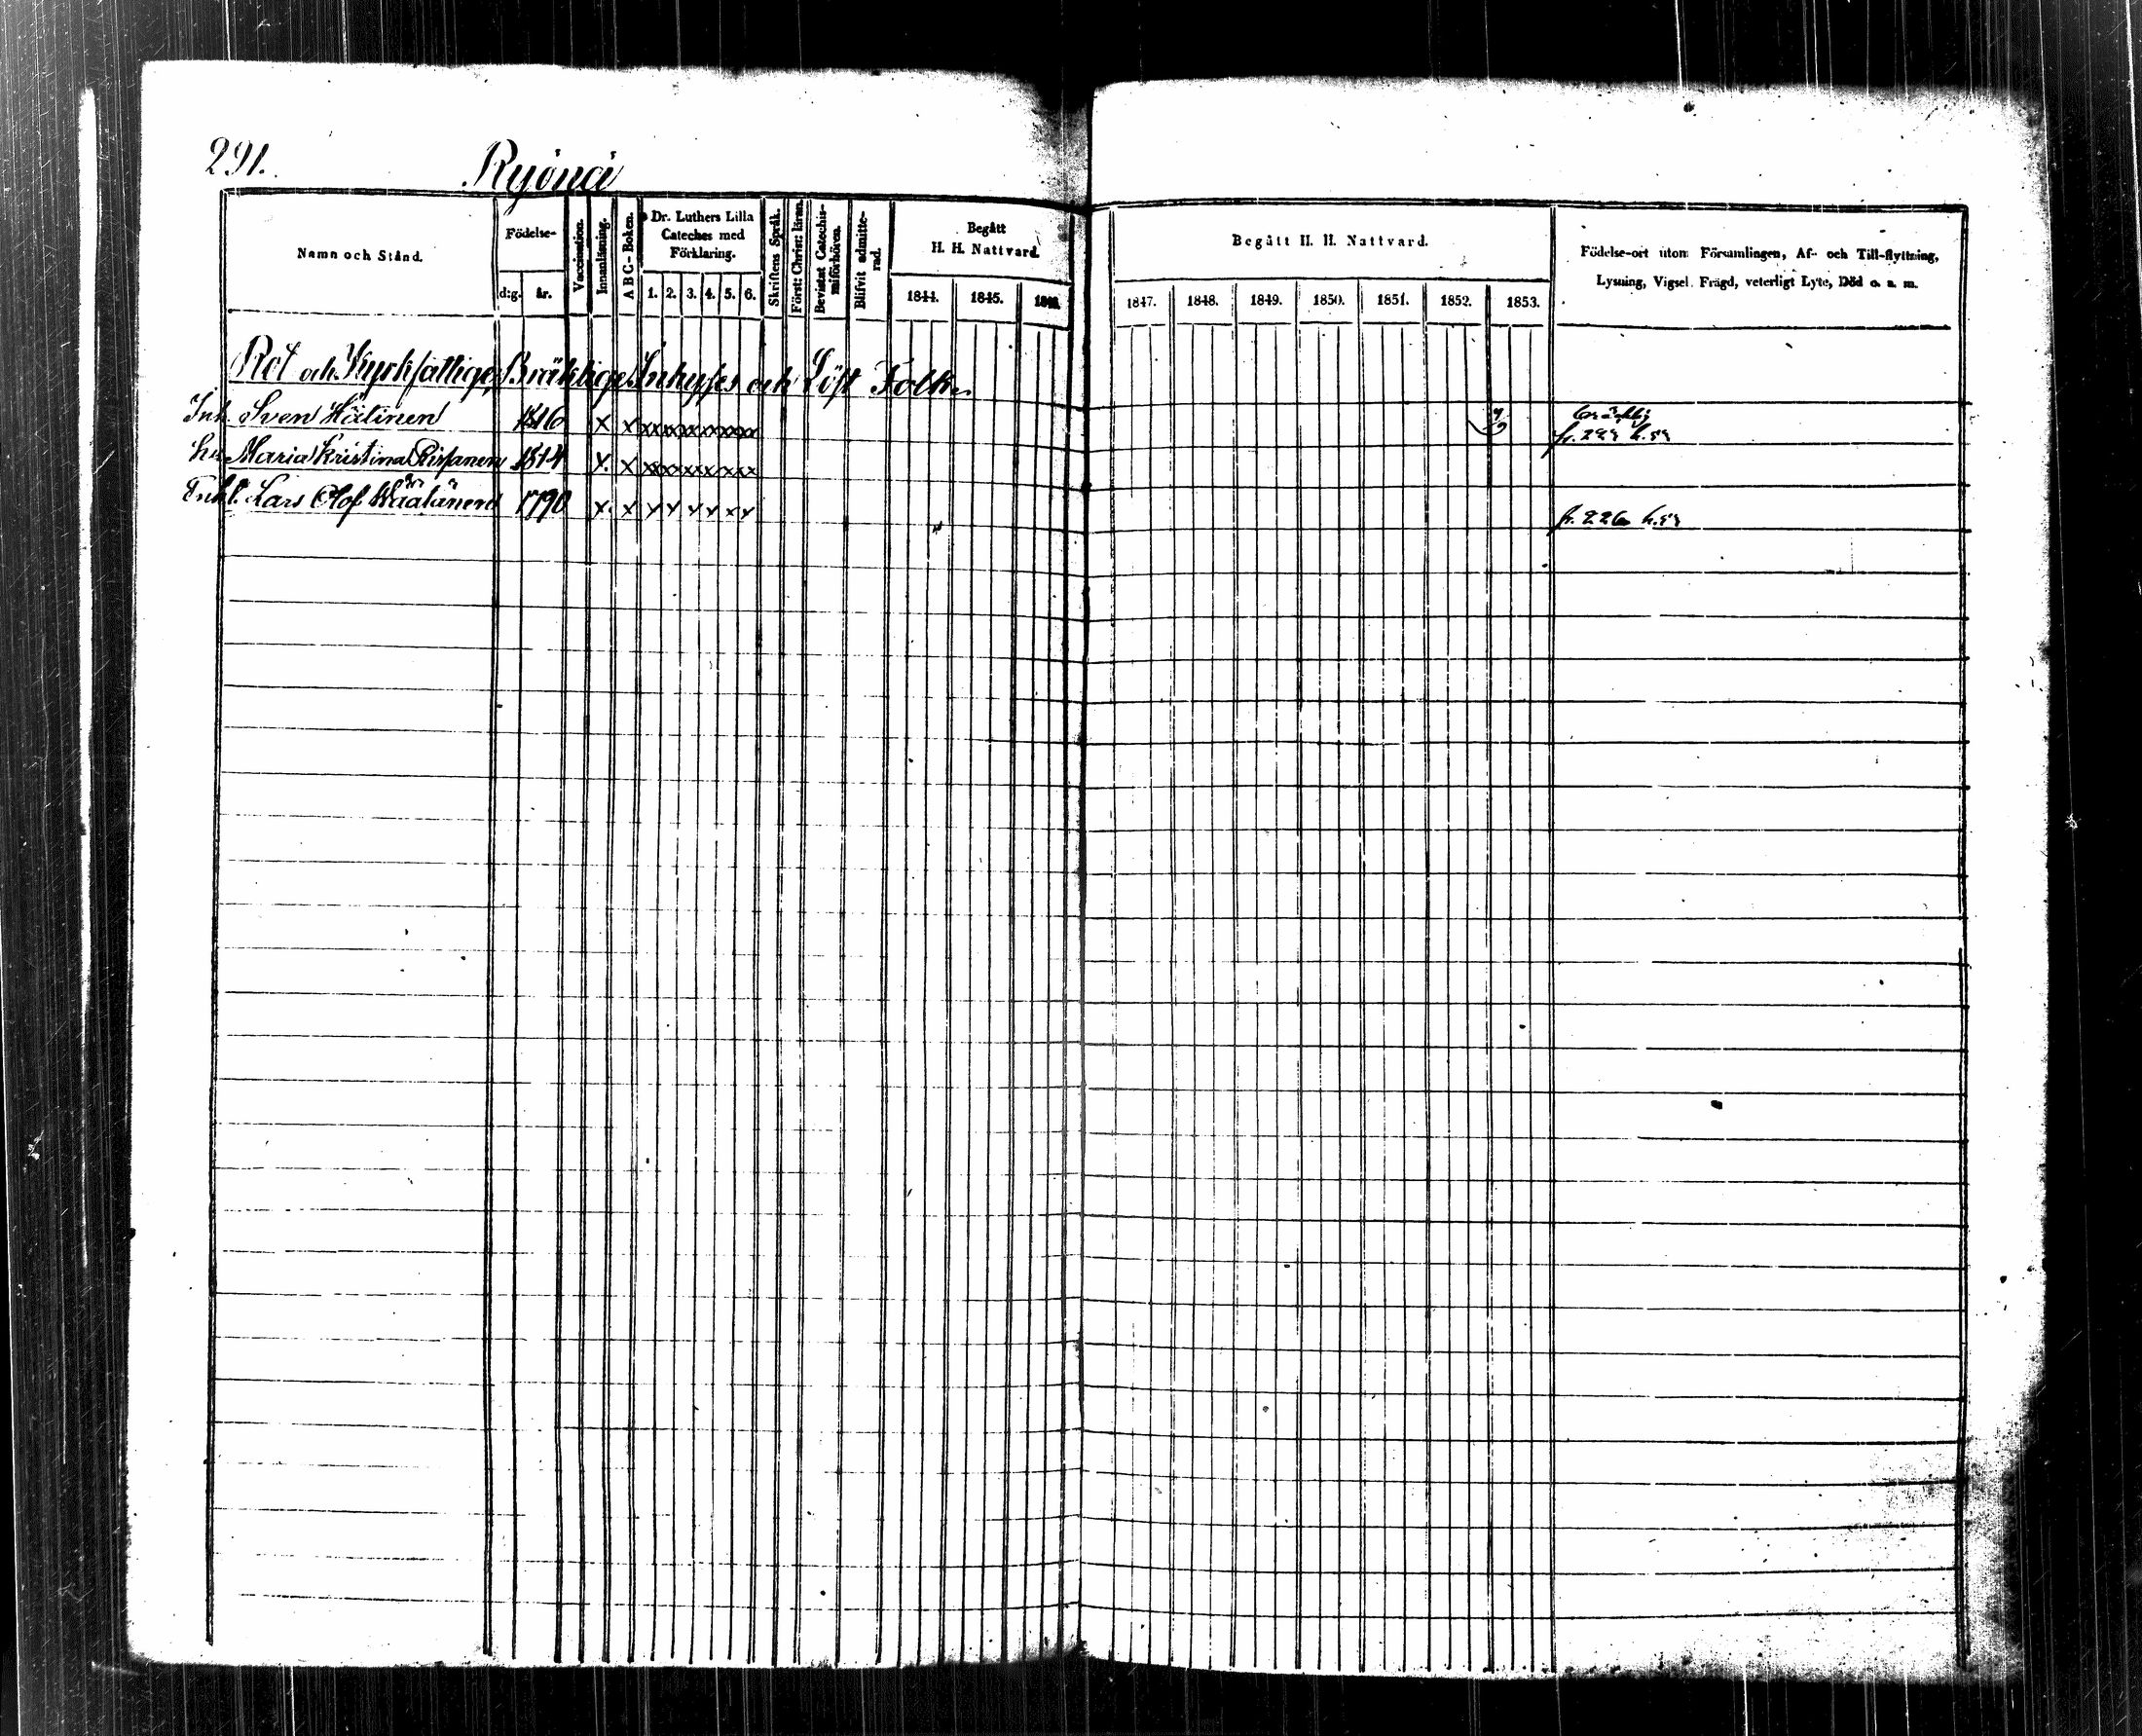 291. Ryönä
Namn och Stånd.
Födelse-
d:g. år.
Vaccination.
Innanläsning.
A B C - Boken.
Dr. Luthers Lilla
Cateches med
Förklaring.
1. 2. 3. 4. 5. 6.
Skriftens Språk.
Först: Christ: läran.
Bevistat Catechis-
miförhören.
Blifvit admitte-
rad.
Begått
H. H. Nattvard.
1844. 1845. 1846.
Begått H. H. Nattvard.
1847. 1848. 1849. 1850. 1851. 1852. 1853.
Födelse-ort utom Församlingen, Af- och Till-flyttning,
Lysning, Vigsel. Frägd, veterligt Lyte, Död o. a. m.
Rot och Kyrkfattige, Bräklige Inhyses och Löst Folk
Inh. Sven Hälinen 1816 x x x x x x x x bräcklig
fr. 229
hu Maria Kristina Rissanen 1814 x x x x x x x x
Enkl. Lars Olof 1790 x x x x x x x x fr. 226